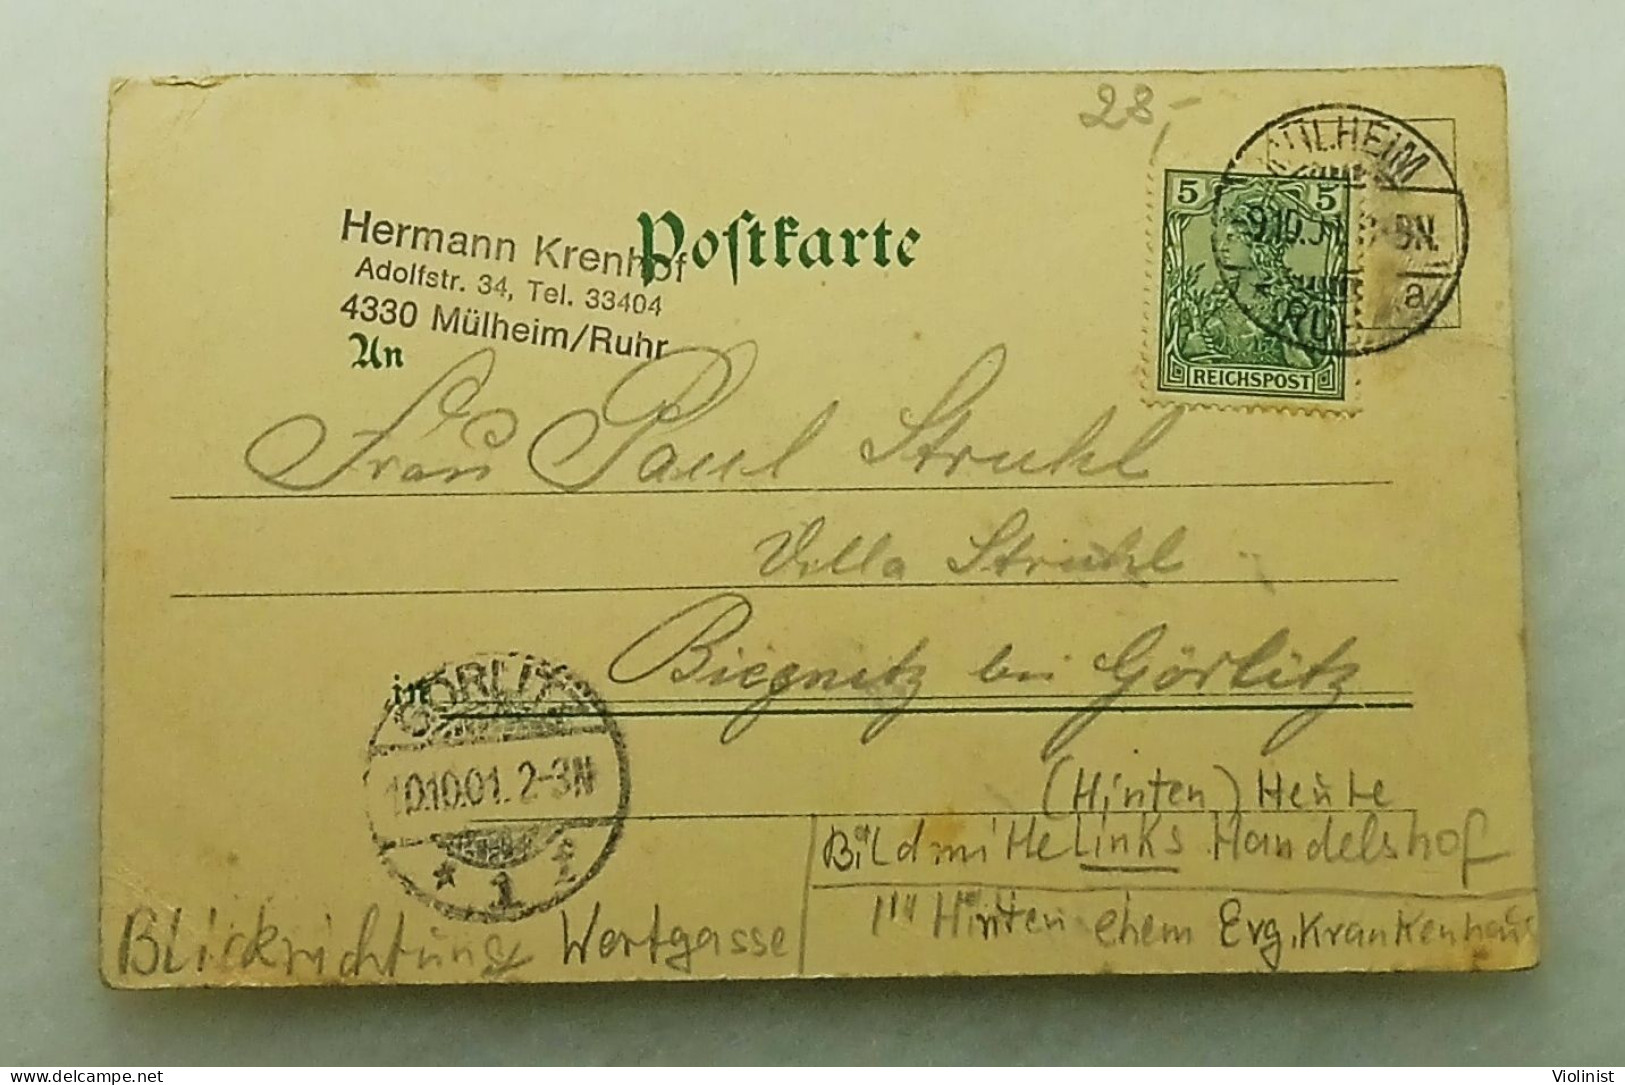 28,-
MÜLHEIM
9.10.01. 8-9N.
(RUHR) a
5 5
REICHSPOST
Postkarte
Hermann Krenhof
Adolfstr. 34, Tel. 33404
4330 Mülheim/Ruhr
An
Frau Paul Struhl
Villa Struhl
in Biegnitz bei Görlitz
GÖRLITZ
10.10.01. 2-3N
* 1 f
(Hinten) Heute
Bild mitte Links Handelshof
"" Hinten ehem Evg. Krankenhaus
Blickrichtung Wertgasse
delcampe.net
Violinist